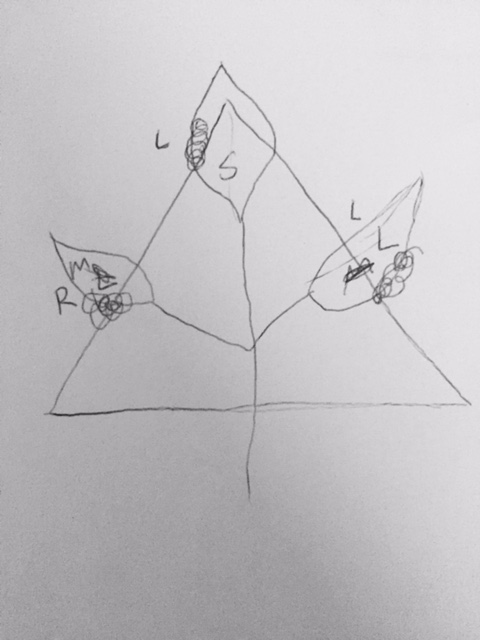 L
S
L
L
M
R